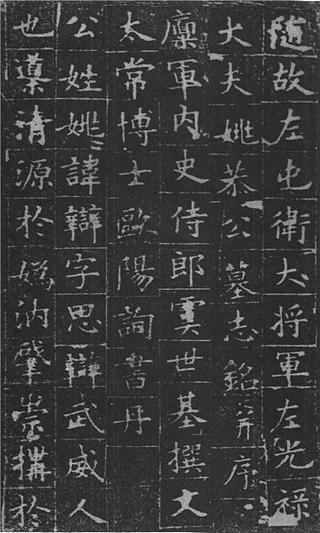 隨故左屯衛大将軍左光祿
大夫姚恭公墓志銘并序
廩軍内史侍郎虞世基撰文
太常博士歐陽詢書丹
公姓姚諱辯字思辯武威人
也導清源於嬀汭肇崇搆於